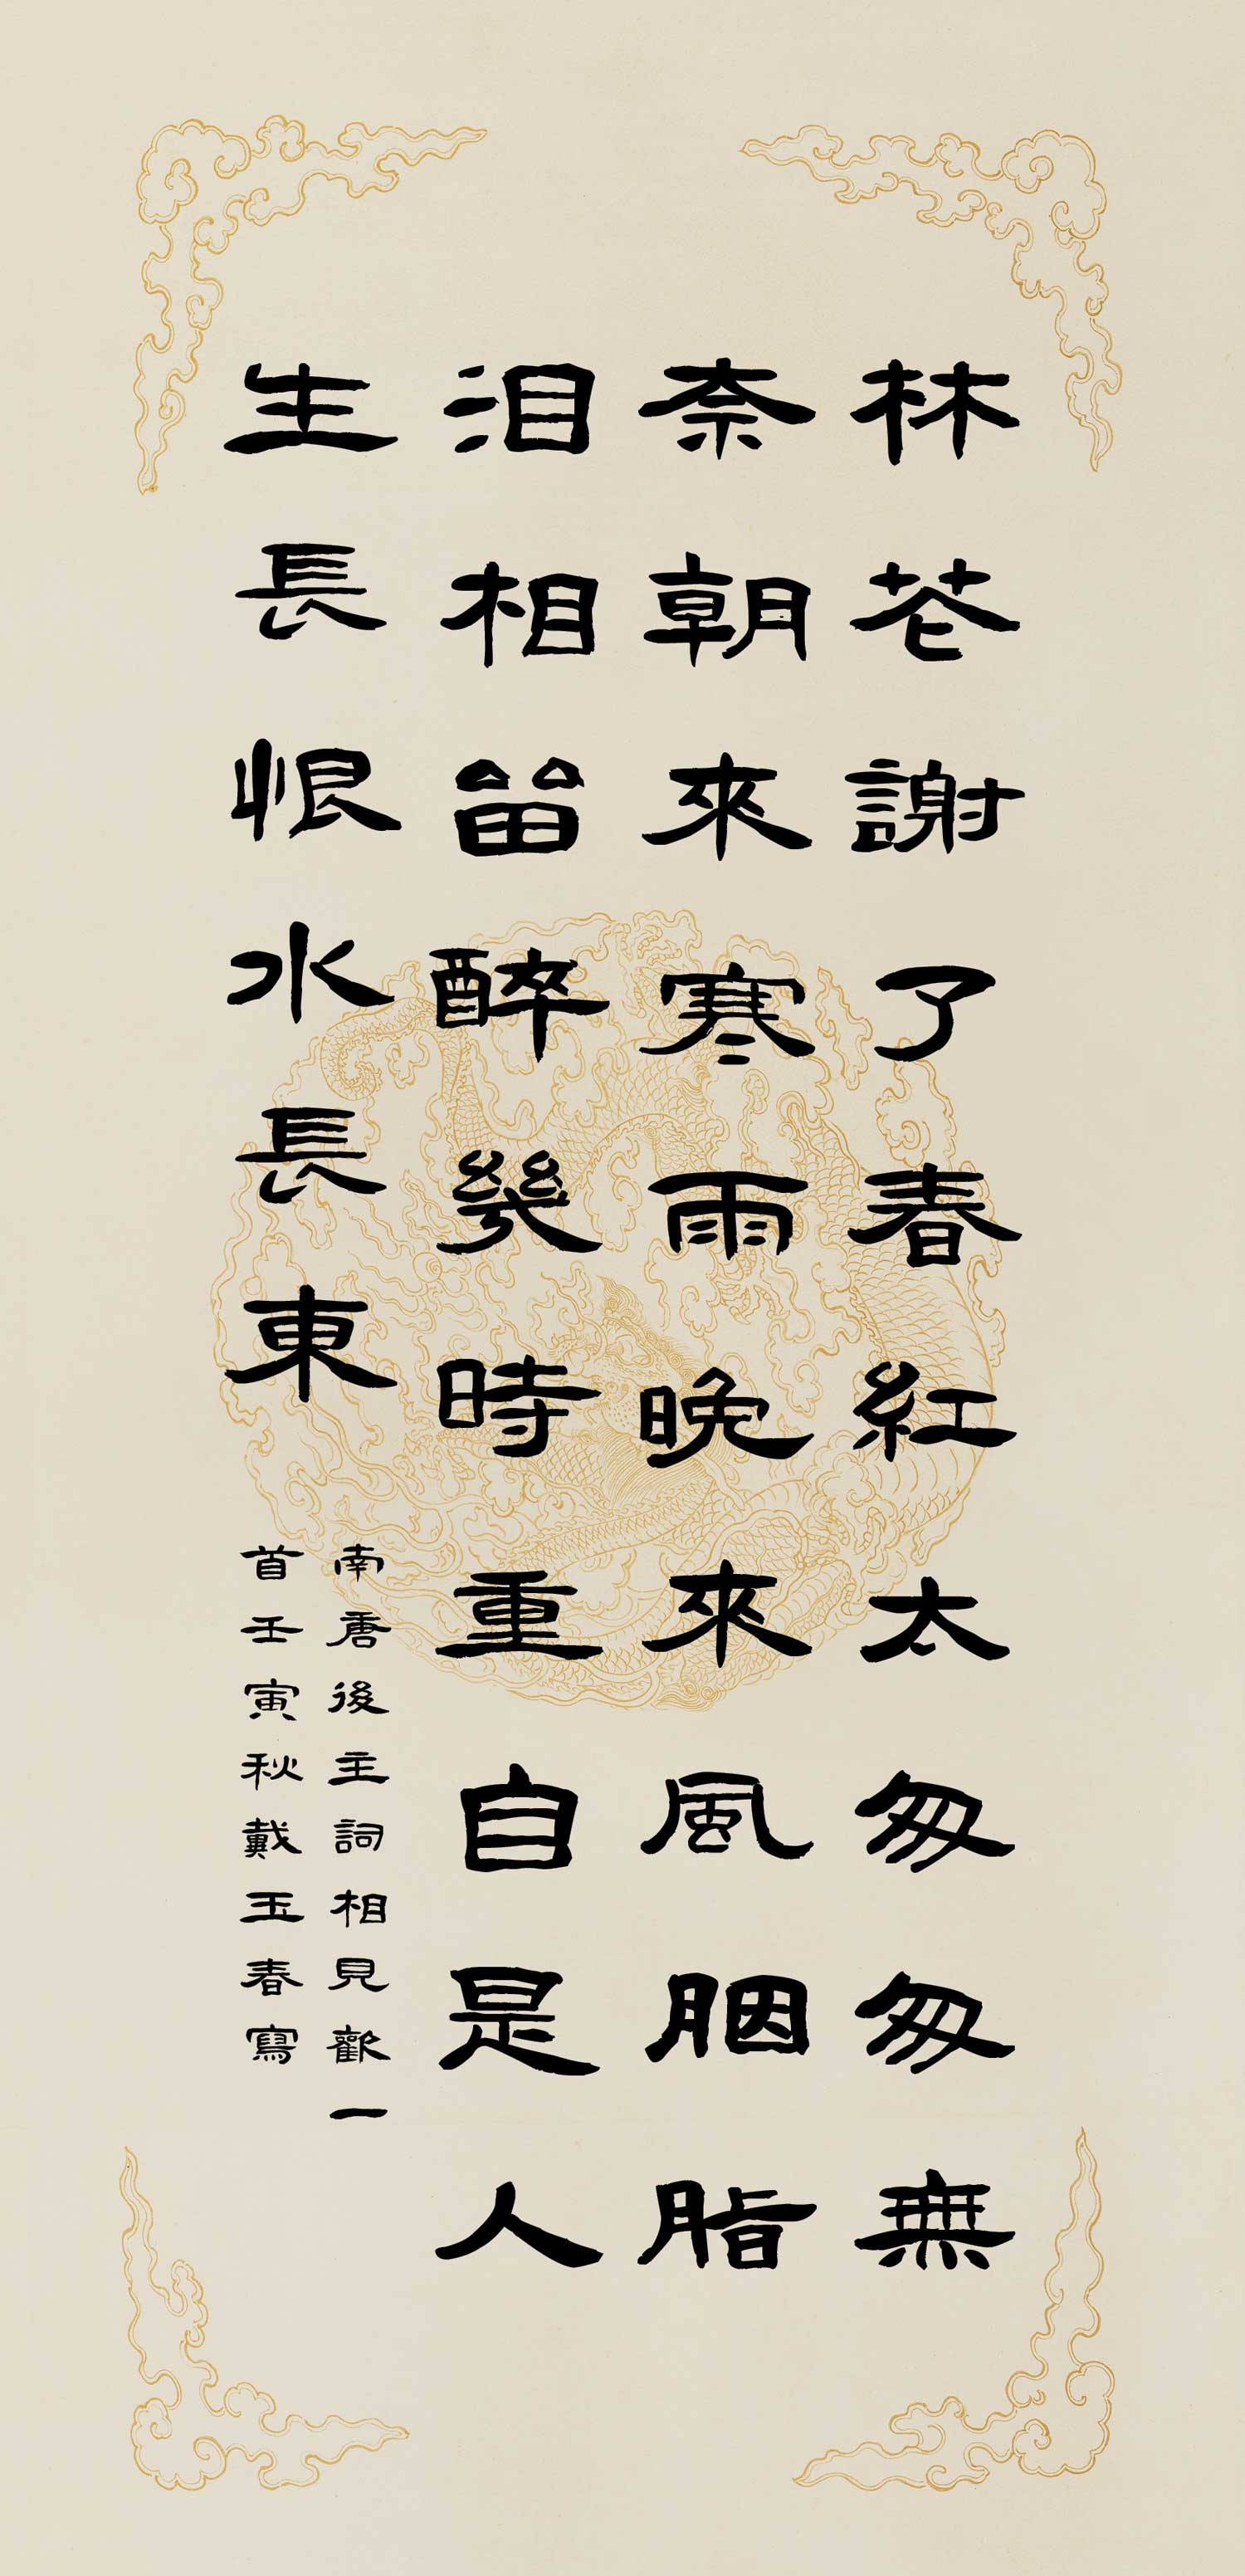 林花謝了春紅太匆匆無
奈朝來寒雨晚來風胭脂
泪相留醉幾時重自是人
生長恨水長東
南唐後主詞相見歡一
首壬寅秋戴玉春寫